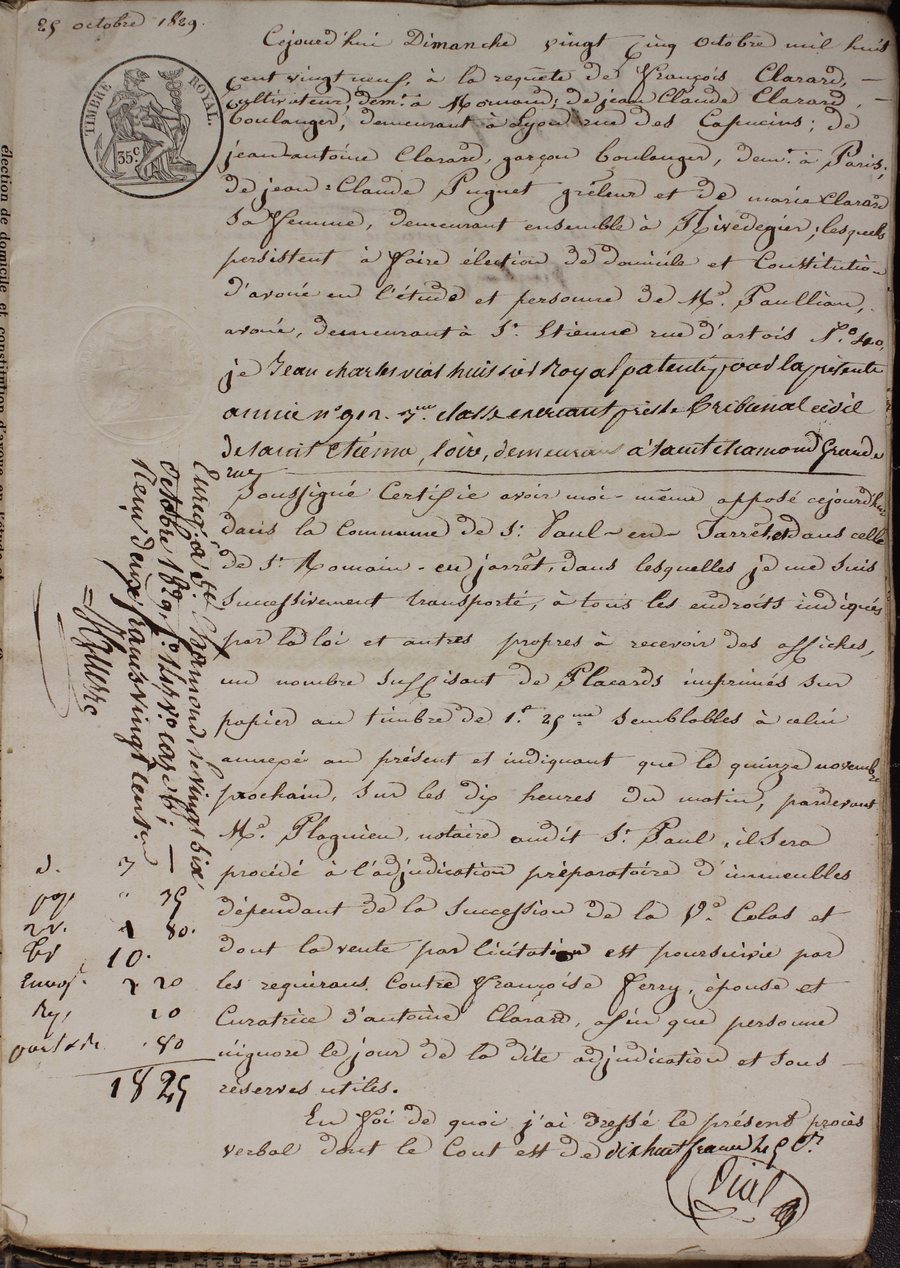 25 octobre 1829.
TIMBRE ROYAL.
35 c
Cejourd'hui Dimanche vingt Cinq Octobre mil huit
Cent vingt neuf, à la requête de françois Clarard, —
Cultivateur, demt. à Mornand; de jean Claude Clarard, —
boulanger, demeurant à Lyon rue des Capucins; de
jean antoine Clarard, garçon boulanger, demt. à Paris;
de jean-Claude Puguet grêleur et de marie Clarard
Sa femme, demeurant ensemble à Rivedegier; lesquels
persistent à faire élection de domicile et Constitution
d'avoué en l'étude et personne de Me. Paullian,
avoué, demeurant à St. Etienne rue d'artois No. 40,
je Jean charles vial huissier Royal patenté pour la présente
année no. 912. 7me. classe exerçant près le tribunal civil
de saint etienne, loire, demeurant à saint chamond Grande
rue
Soussigné Certifie avoir moi-même apposé cejourd'hui
dans la Commune de St. Paul-en-Jarrêt, et dans celle
de St. Romain-en-jarrêt, dans lesquelles je me suis
successivement transporté, à tous les endroits indiqués
par la loi et autres propres à recevoir des affiches,
un nombre suffisant de Placards imprimés sur
papier au timbre de 1f. 25 me semblables à celui
annexé au présent et indiquant que le quinze novembre
prochain, sur les dix heures du matin, pardevant
Me. Plagnieu, notaire audit St. Paul, il sera
procédé à l'adjudication préparatoire d'immeubles
dépendant de la succession de la Ve. Colas et
dont la vente par licitation est poursuivie par
les requérans Contre françoise ferry, épouse et
Curatrice d'antoine Clarard, afin que personne
n'ignore le jour de la dite adjudication et sous —
réserves utiles.
En foi de quoi j'ai dressé le présent procès
verbal dont le Cout est de dix huit francs 25 Ct.
Vial
Enregé. à St. Chamond, le vingt six
octobre 1829, fo. 141 vo. case 6; —
Reçu deux francs vingt cent.
7
" 35
1 80.
10.
2 20
10
. 80
18 25
élection de domicile et constitution d'avoué en l'étude et